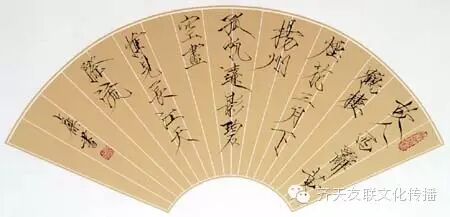 故人西辭黃
鶴樓
煙花三月下
揚州
孤帆遠影碧
空盡
惟見長江天
際流
齐天友联文化传播